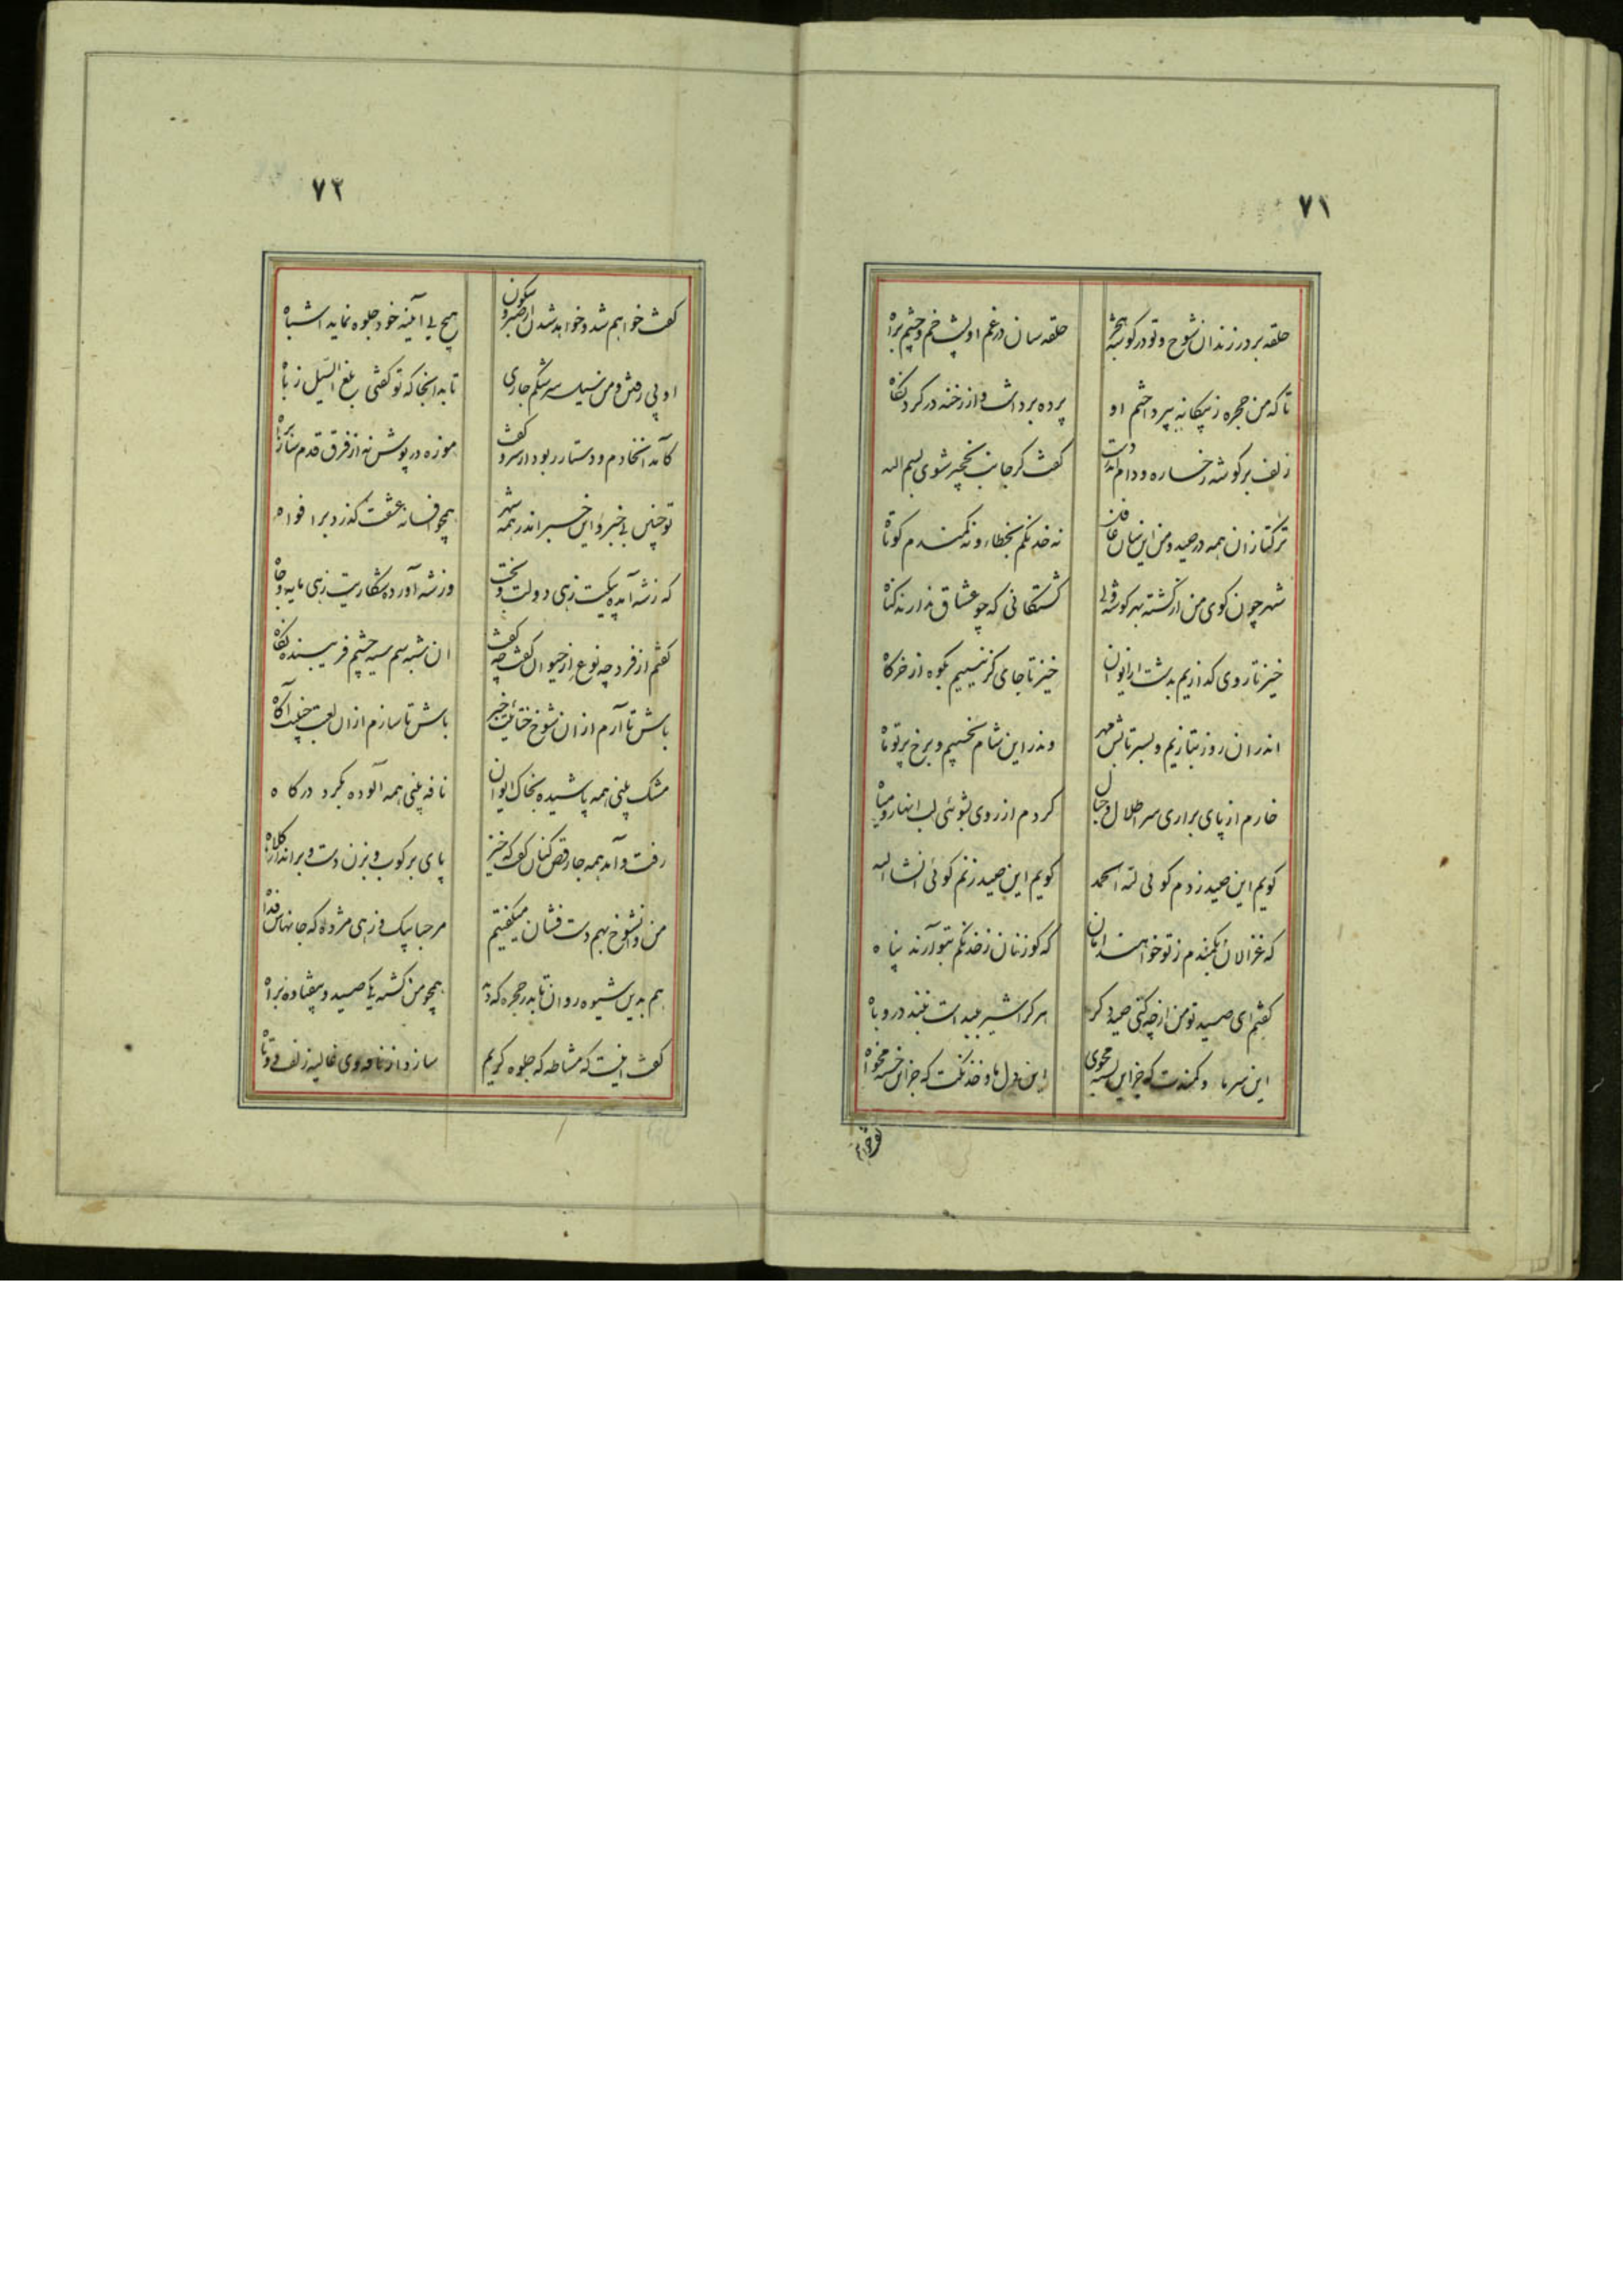 ۷۱
حلقه بر در زند ان شوخ و تو در کوشهٔ حلقه سان در غم او پشت خم و چشم براه
تا که من حجره ز بیکانه بپرداختم او پرده برداشت و از رخنه در کرد نکاه
زلف بر کوشه رخساره و دام کفت کر جانب نخچیر شوی بسم الله
ترکتازان همه در صید و من این سان غافل نه خدنکم بخطا و نه کمندم کوتاه
شهر چون کوی من از کشته بهر کوشه کشتکانی که چو عشاق ندارند کناه
خیز تا روی کذاریم بدشت از ایوان خیز تا جای کزینیم بکوه از خرکاه
اندر ان روز بتازیم و بسر تابش مهر وندر این شام نخسپیم و برخ پرتو ماه
خارم از پای براری سر اطلال و جبال کردم از روی بشوئی لب انهار و میاه
کویم این صید زدم کوئی لله الحمد کویم این صید زنم کوئی انشاالله
که غزالان بکمندم ز تو خواهند امان که کوزنان ز خدنکم بتو آرند پناه
کفتم ای صید تو من از چه کنی صید دکر هر کرا شیر بصید است نبندد روباه
این سر ما و کمندت که جز این بسته مجوی این دل ما و خدنکت که جز این خسته مخواه
۷۲
کفت خواهم شد و خواهد شدن از صبر و سکون هیچ بی اینه خود جلوه نماید اشباه
او پی رخش و من سیل سرشکم جاری تا بدانجا که تو کفتی بلغ السیل زباه
کآمد انخادم و دستار ربود از سر و کفت موزه در پوش نه از فرق قدم ساز براه
تو چنین بی خبر و این خبر اندر همه شهر همچو افسانه عشقت کذرد بر افواه
که ز شه آمده پیکیت زهی دولت و بخت وز شه آورده شکاریت زهی مایه و جاه
کفتم از فرد چه نوع از حیوان کفت چه کفت ان شبه سم سیه چشم فریبنده نکاه
باش تا آرم از ان شوخ ختائیت خبر باش تا سازم از ان لعبت چینیت آکاه
مشک بینی همه پاشیده بخاک ایوان نافه بینی همه آلوده بکرد درکاه
رفت و آمد همه جا رقص کنان کفت که خیز پای بر کوب و بزن دست و برانداز کلاه
من و انشوخ بهم دست فشان میکفتیم مرحبا پیک و زهی مژده که جانهاش فداه
هم بدین شیوه روان تا بدر حجره که دید همچو من کشته یک صید و بیفتاده براه
کفت اینت که مشاطه که جلوه کریم سازد از نافه وی غالیه زلف دوتاه